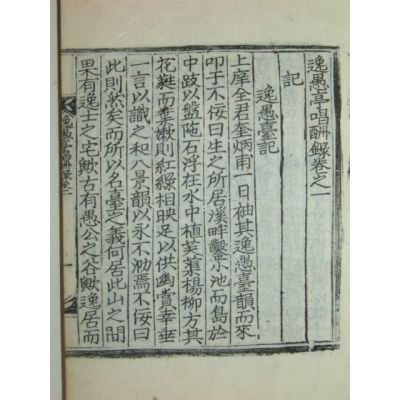 逸愚亭唱酬錄卷之一
記
逸愚臺記
上庠全君奎炳甫一日袖其逸愚臺韻而來
叩于不佞曰生之所居溪畔鑿小池而島於
中跂以盤陁石浮在水中植芙葉楊柳方其
花蕤而葉嫩則紅綠相映足以供幽賞幸垂
一言以識之和八景韻以永不泐焉不佞曰
此則然矣而所以名臺之義何居此山之間
果有逸士之宅歟古有愚公之谷歟逸居而
逸愚亭唱酬錄卷之一